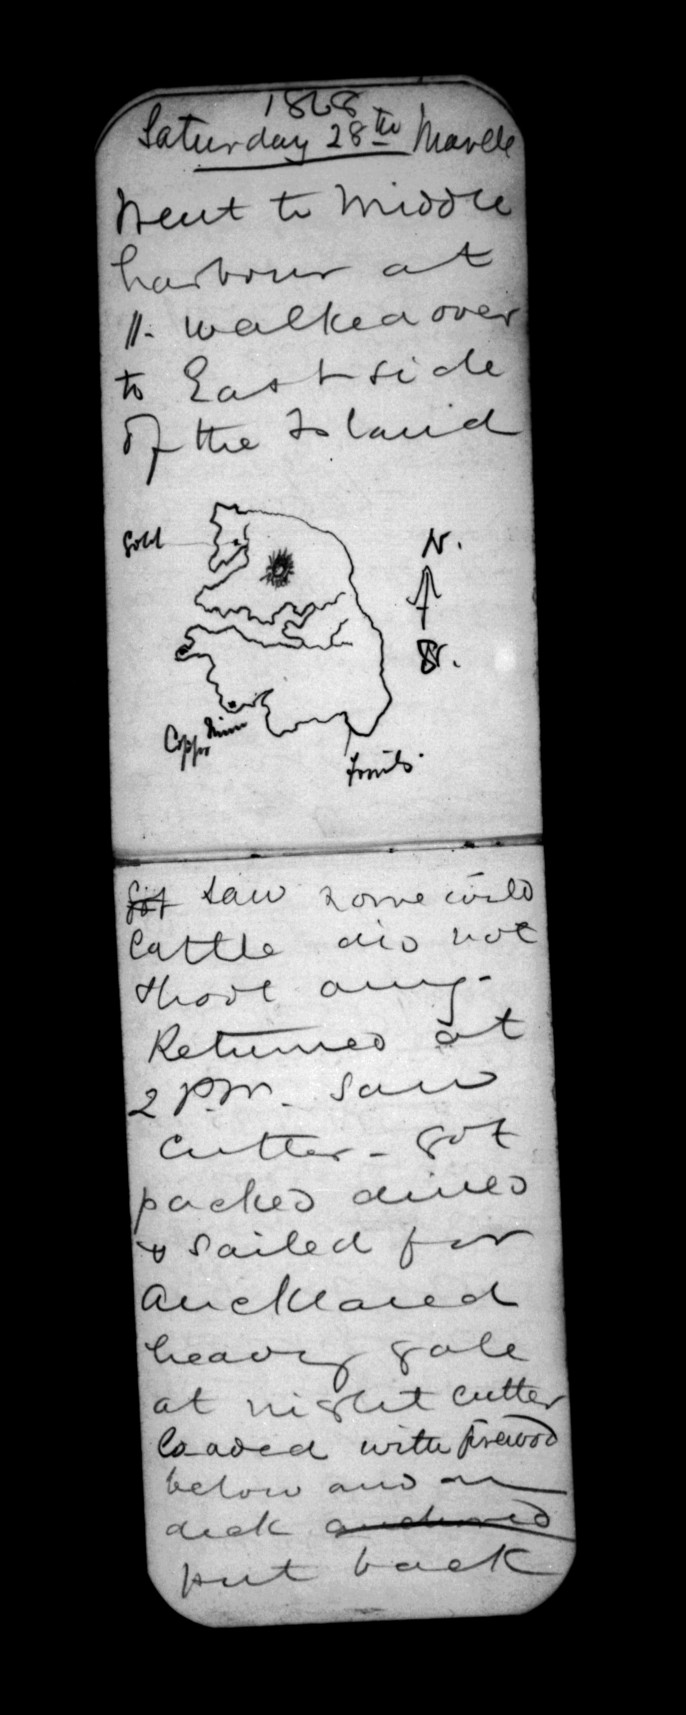 1868
Saturday 28th March
Went to Middle
harbour at
11. walked over
to East side
of the Island
Gold
N.
S.
Copper Mine
Fossils.
Got saw some wild
Cattle did not
shoot any-
Returned at
2 P.M. Saw
Cutter - got
packed dined
& sailed for
Auckland
heavy gale
at night cutter
loaded with firewood
below and on
deck anchored
put back